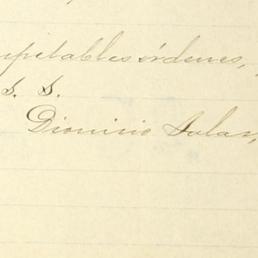 respetables órdenes,
S. S.
Dionisio Salas,